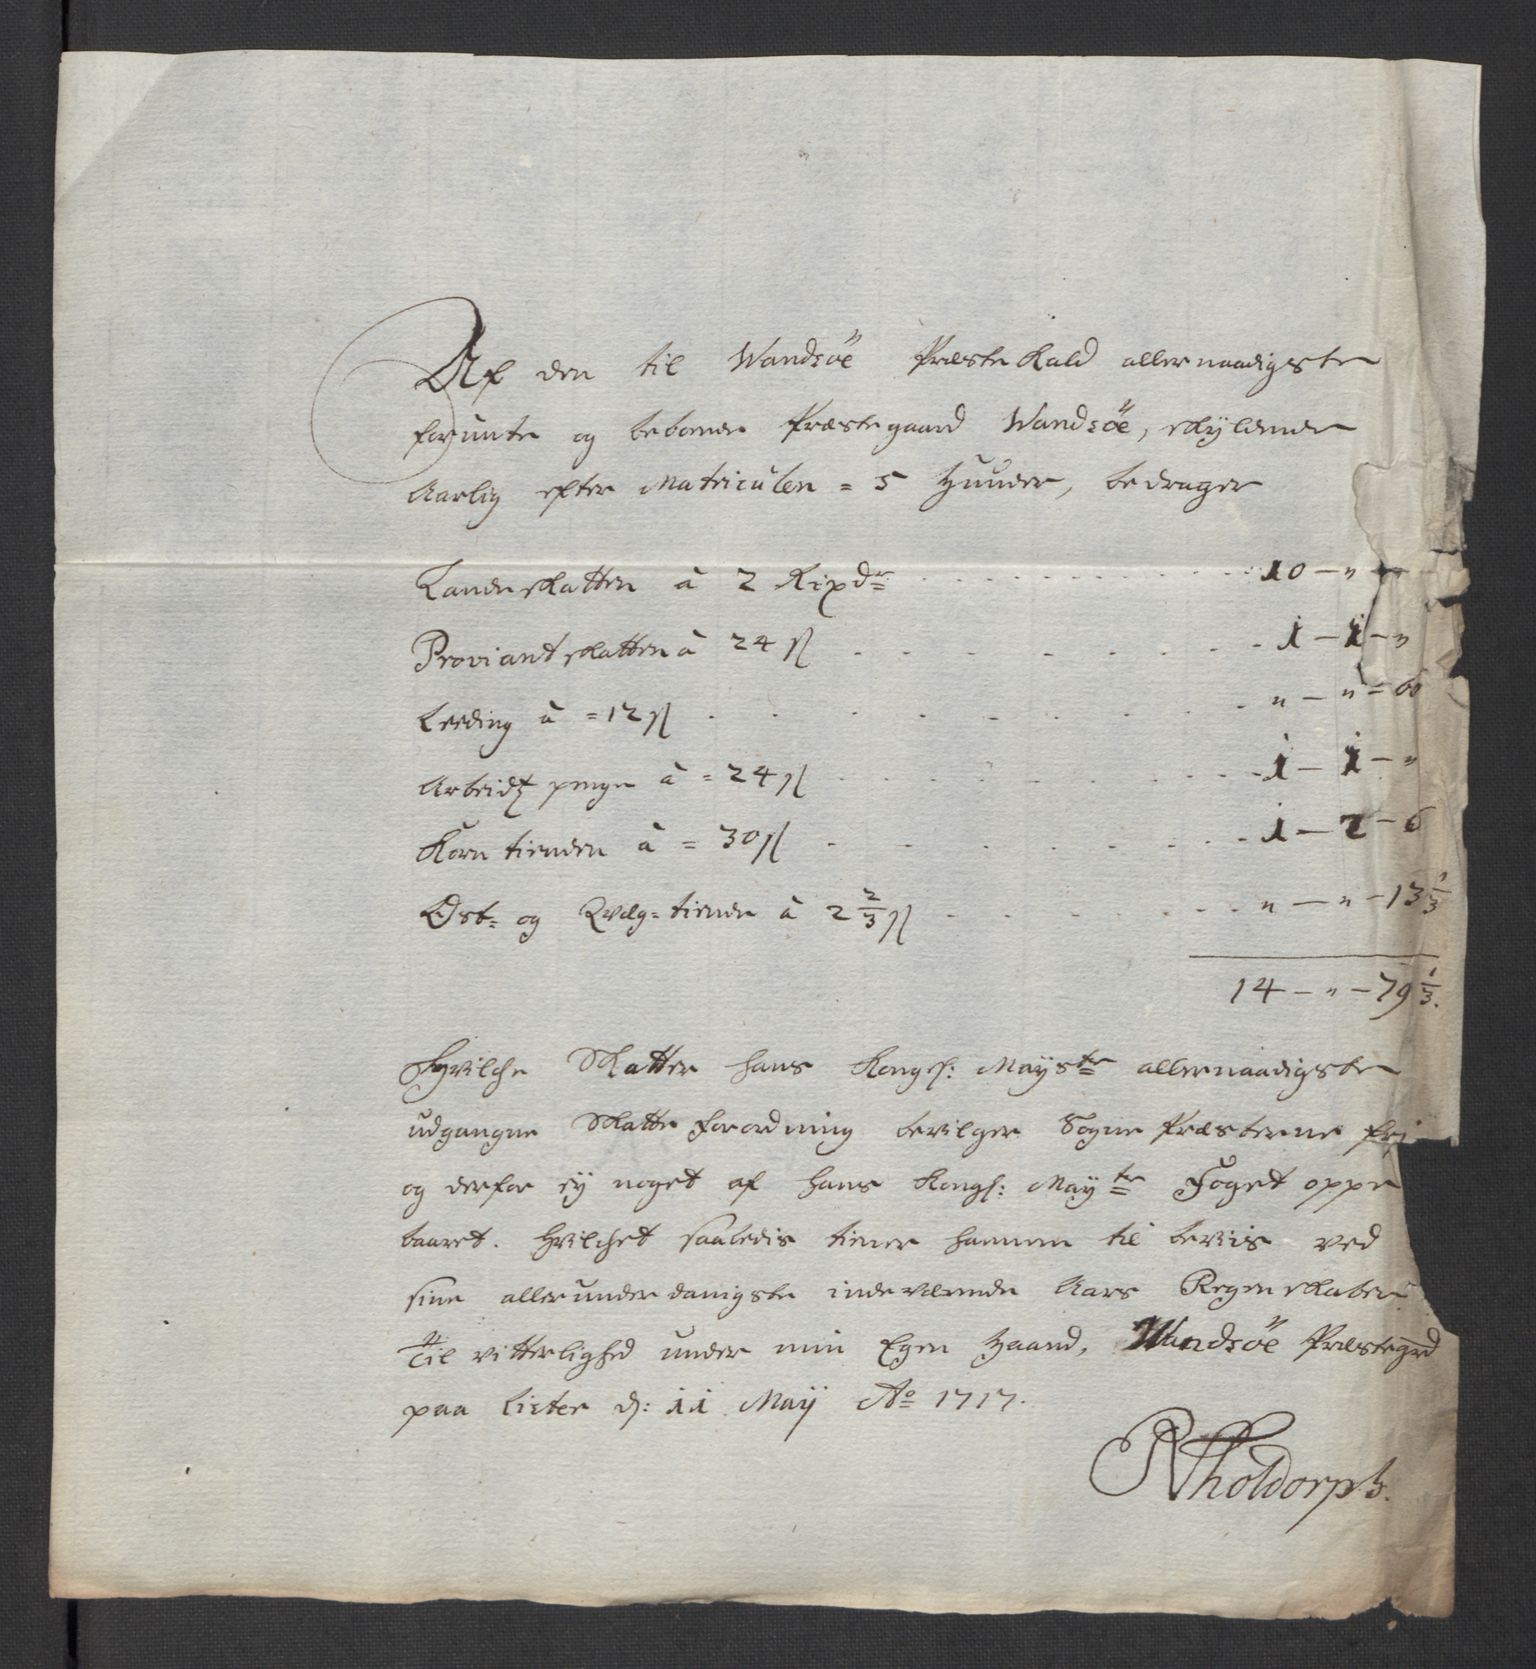 Af den til Wandsöe Præste Kald allernaadigste
forunte og beboende Præstegaard Wandsöe, skyldende
Aarlig efter Matriculen = 5 Huuder, bedrager
Landskatten à 2 Rixdr 10 — " —
Proviantskatten à 24 ß 1 — 1 — "
Leeding à = 12 ß " — " = 60
Arbeidtz penge à = 24 ß 1 — 1 — "
Korn tienden à = 30 ß 1 — 2 — 6
Ost= og Qvæg=tiende à 2 2/3 ß " — " — 13 1/3
14 — " — 79 1/3.
Hvilche Skatter hans Kongl: Mayste allernaadigste
udgangne Skatte forordning bevilger Sogne Præsterne fri
og derfor ey noget af hans Kongl: Mayts Foget oppe
baaret. Hvilchet saaledis tiener hannem til beviis ved
sine allerunderdanigste indeværende Aars Regenskaber
Til vitterlighed under min Egen Haand, Wandsöe Præstegrd
paa Lister d: 11 Maij Ao 1717.
RTholdorph.